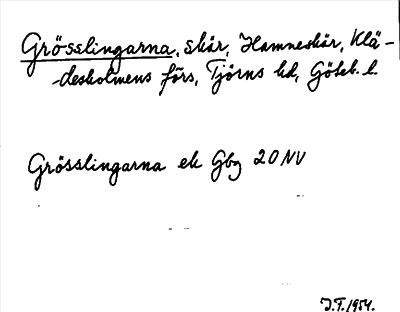 Grösslingarna, skär, Hamneskär, Klä-
desholmens förs, Tjörns hd, Göteb. l.
Grösslingarna ek Gbg 20 NV
J.F. 1954.